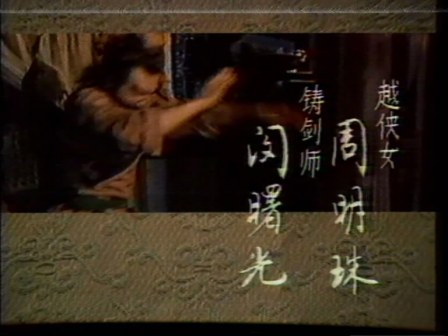 越侠女
周明珠
铸剑师
闵曙光